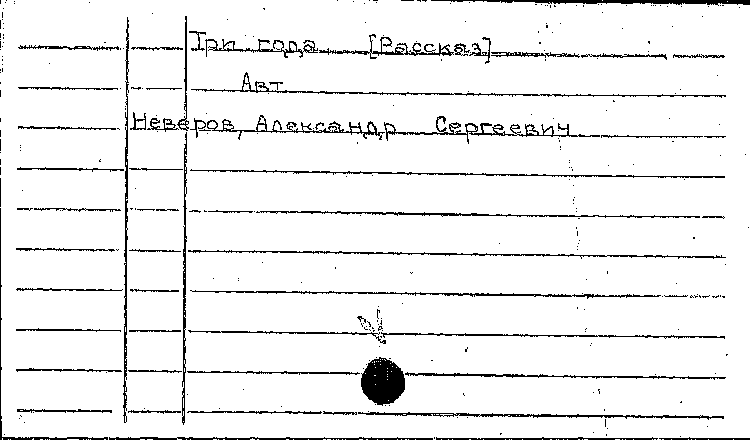 Три года [Рассказ]
Авт
Неверов, Александр Сергеевич